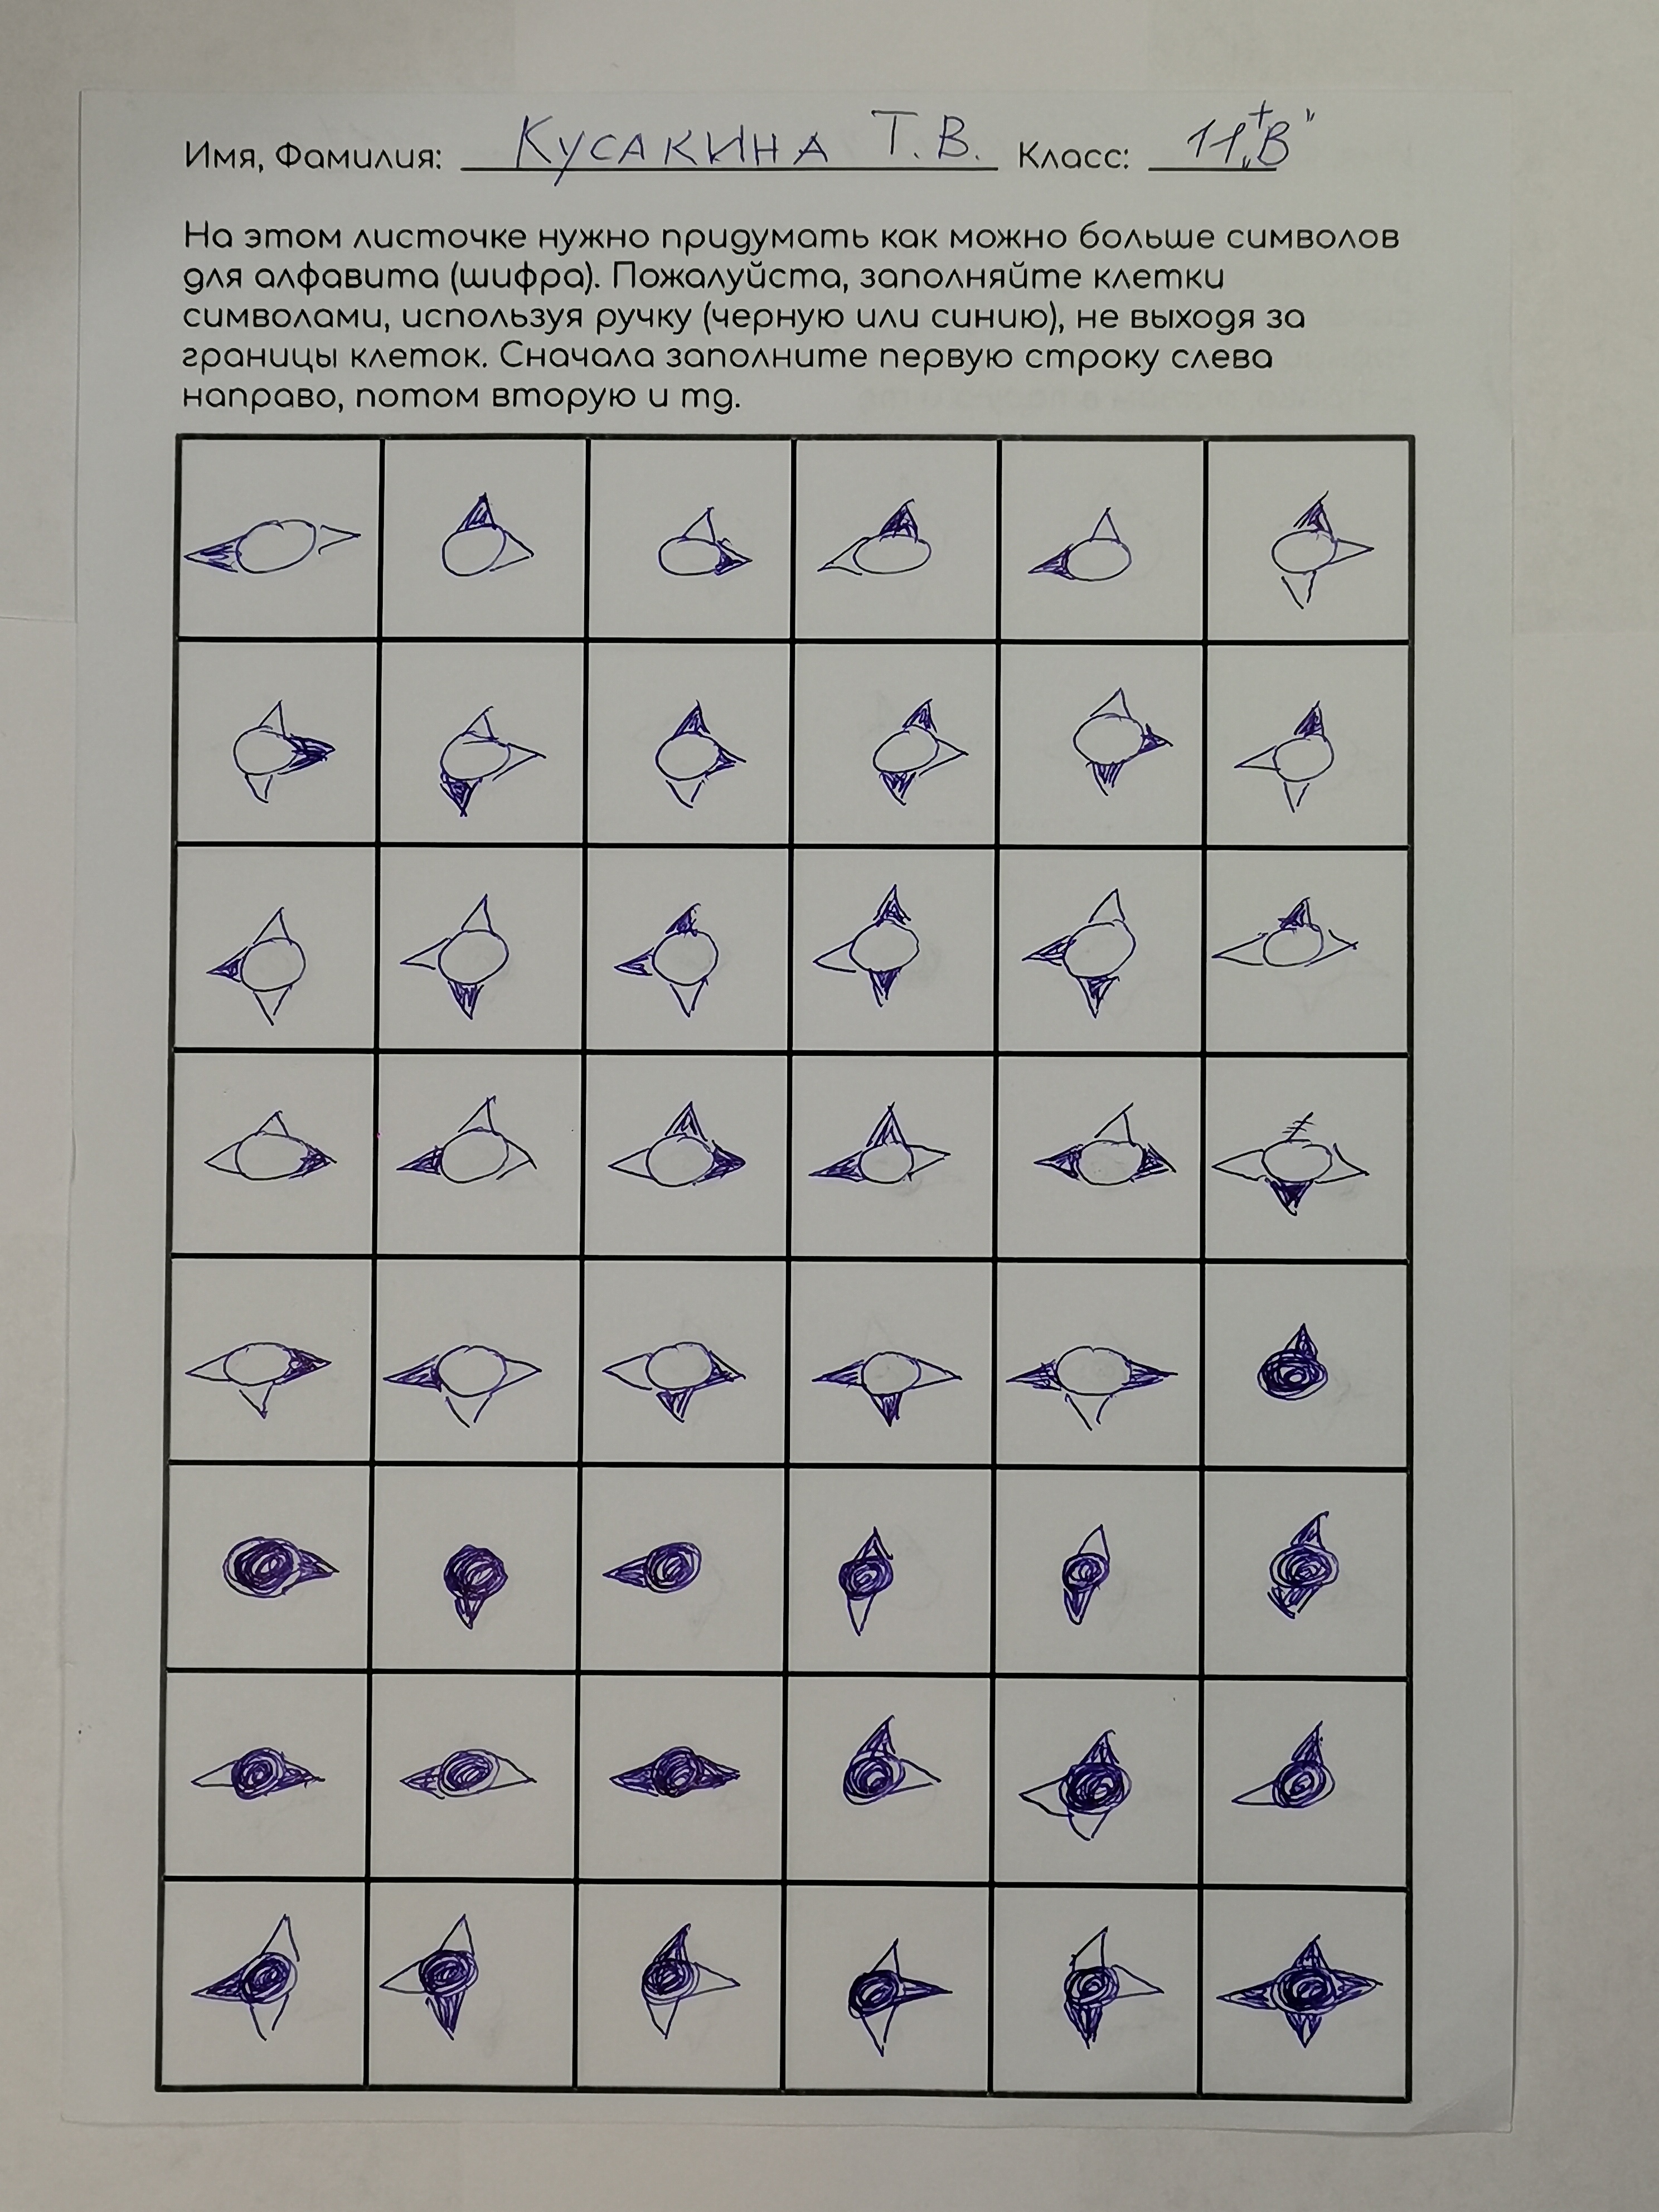 Имя, Фамилия: КУСАКИНА Т.В. Класс: 11 „В"
На этом листочке нужно придумать как можно больше символов
для алфавита (шифра). Пожалуйста, заполняйте клетки
символами, используя ручку (черную или синию), не выходя за
границы клеток. Сначала заполните первую строку слева
направо, потом вторую и тд.